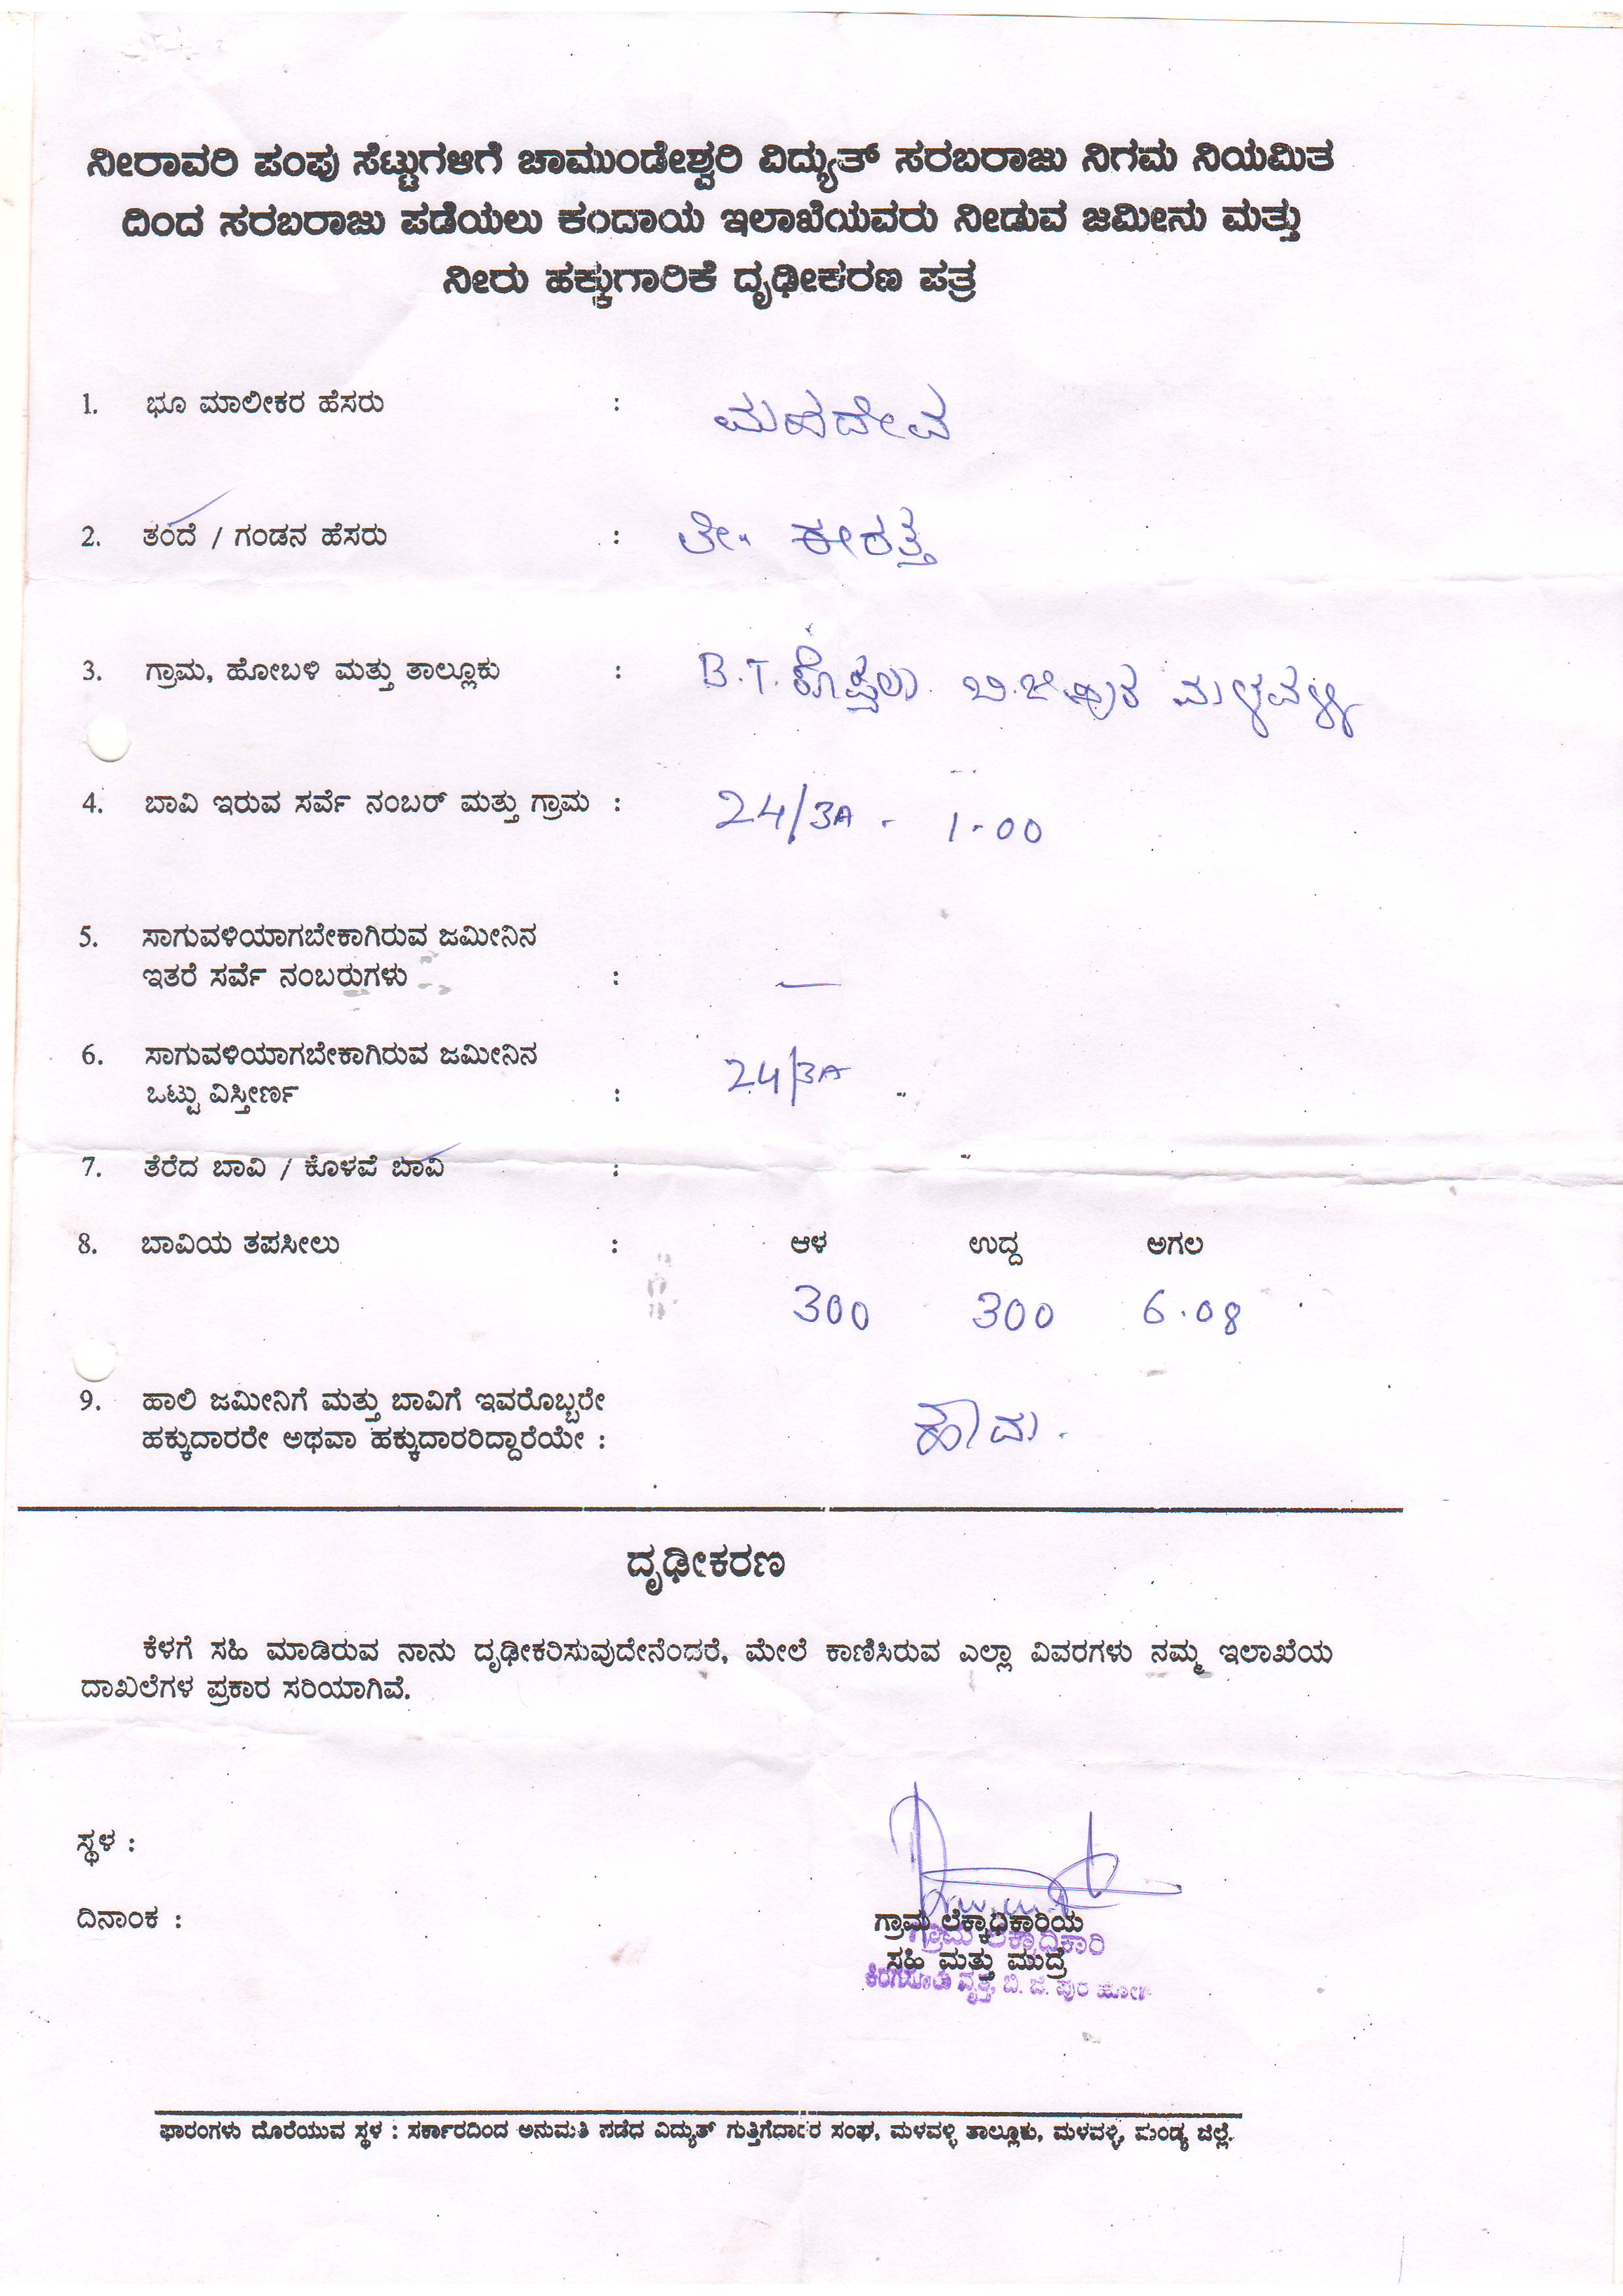 ನೀರಾವರಿ ಪಂಪು ಸೆಟ್ಟುಗಳಿಗೆ ಚಾಮುಂಡೇಶ್ವರಿ ವಿದ್ಯುತ್ ಸರಬರಾಜು ನಿಗಮ ನಿಯಮಿತ
ದಿಂದ ಸರಬರಾಜು ಪಡೆಯಲು ಕಂದಾಯ ಇಲಾಖೆಯವರು ನೀಡುವ ಜಮೀನು ಮತ್ತು
ನೀರು ಹಕ್ಕುಗಾರಿಕೆ ದೃಢೀಕರಣ ಪತ್ರ
1. ಭೂ ಮಾಲೀಕರ ಹೆಸರು : ಮಹದೇವ
2. ತಂದೆ / ಗಂಡನ ಹೆಸರು :
3. ಗ್ರಾಮ, ಹೋಬಳಿ ಮತ್ತು ತಾಲ್ಲೂಕು : B.T. ಕೊಪ್ಪಲು. ಬಿ.ಜಿ.ಪುರ ಮಳವಳ್ಳಿ
4. ಬಾವಿ ಇರುವ ಸರ್ವೆ ನಂಬರ್ ಮತ್ತು ಗ್ರಾಮ : 24/3A - 1-00
5. ಸಾಗುವಳಿಯಾಗಬೇಕಾಗಿರುವ ಜಮೀನಿನ
ಇತರೆ ಸರ್ವೆ ನಂಬರುಗಳು : —
6. ಸಾಗುವಳಿಯಾಗಬೇಕಾಗಿರುವ ಜಮೀನಿನ
ಒಟ್ಟು ವಿಸ್ತೀರ್ಣ : 24/3A
7. ತೆರೆದ ಬಾವಿ / ಕೊಳವೆ ಬಾವಿ :
8. ಬಾವಿಯ ತಪಸೀಲು : ಆಳ ಉದ್ದ ಅಗಲ
300 300 6.08
9. ಹಾಲಿ ಜಮೀನಿಗೆ ಮತ್ತು ಬಾವಿಗೆ ಇವರೊಬ್ಬರೇ
ಹಕ್ಕುದಾರರೇ ಅಥವಾ ಹಕ್ಕುದಾರರಿದ್ದಾರೆಯೇ : ಹೌದು.
ದೃಢೀಕರಣ
ಕೆಳಗೆ ಸಹಿ ಮಾಡಿರುವ ನಾನು ದೃಢೀಕರಿಸುವುದೇನೆಂದರೆ, ಮೇಲೆ ಕಾಣಿಸಿರುವ ಎಲ್ಲಾ ವಿವರಗಳು ನಮ್ಮ ಇಲಾಖೆಯ
ದಾಖಲೆಗಳ ಪ್ರಕಾರ ಸರಿಯಾಗಿವೆ.
ಸ್ಥಳ :
ದಿನಾಂಕ :
ಗ್ರಾಮ ಲೆಕ್ಕಾಧಿಕಾರಿಯ
ಗ್ರಾಮ ಲೆಕ್ಕಾಧಿಕಾರಿ
ಸಹಿ ಮತ್ತು ಮುದ್ರೆ
ವೃತ್ತ, ಬಿ. ಜಿ. ಪುರ
ಫಾರಂಗಳು ದೊರೆಯುವ ಸ್ಥಳ : ಸರ್ಕಾರದಿಂದ ಅನುಮತಿ ಪಡೆದ ವಿದ್ಯುತ್ ಗುತ್ತಿಗೆದಾರರ ಸಂಘ, ಮಳವಳ್ಳಿ ತಾಲ್ಲೂಕು, ಮಳವಳ್ಳಿ, ಮಂಡ್ಯ ಜಿಲ್ಲೆ.